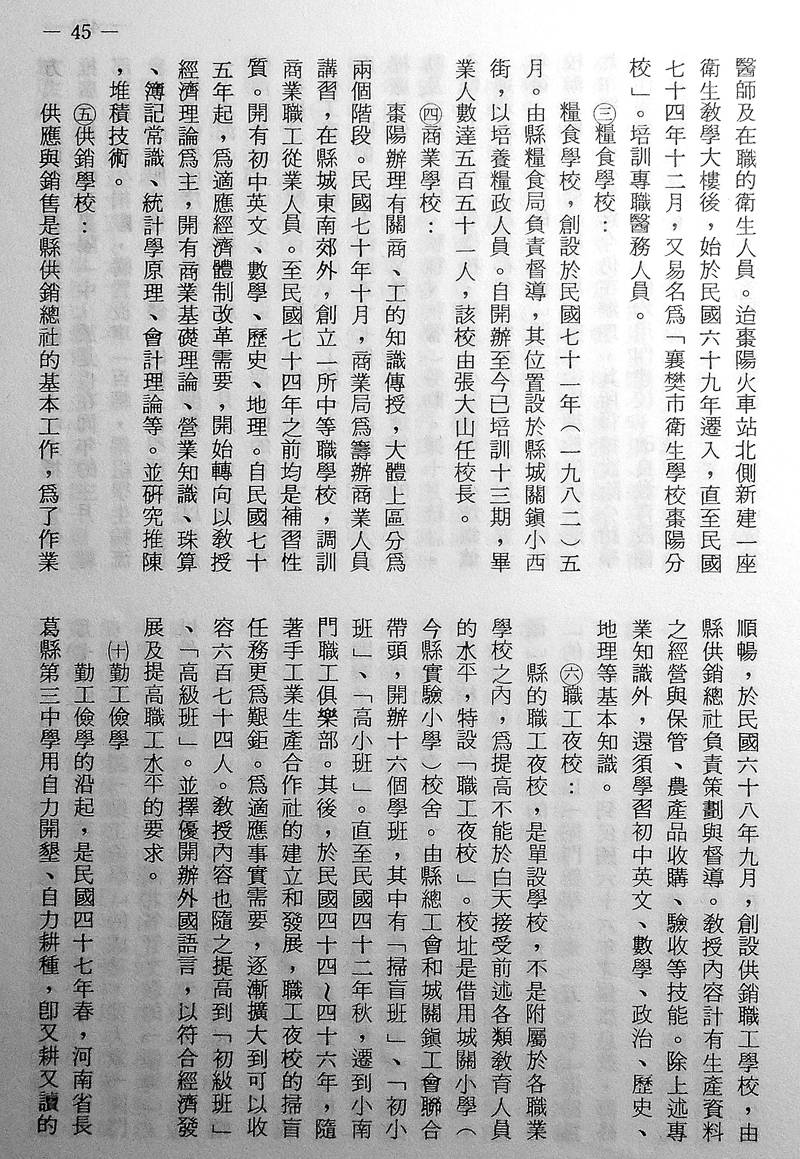 — 45 —
醫師及在職的衛生人員。治棗陽火車站北側新建一座
衛生教學大樓後，始於民國六十九年遷入，直至民國
七十四年十二月，又易名爲「襄樊市衛生學校棗陽分
校」。培訓專職醫務人員。
㈢糧食學校：
糧食學校，創設於民國七十一年（一九八二）五
月。由縣糧食局負責督導，其位置設於縣城關鎭小西
街，以培養糧政人員。自開辦至今已培訓十三期，畢
業人數達五百五十一人，該校由張大山任校長。
㈣商業學校：
棗陽辦理有關商、工的知識傳授，大體上區分爲
兩個階段。民國七十年十月，商業局爲籌辦商業人員
講習，在縣城東南郊外，創立一所中等職學校，調訓
商業職工從業人員。至民國七十四年之前均是補習性
質。開有初中英文、數學、歷史、地理。自民國七十
五年起，爲適應經濟體制改革需要，開始轉向以教授
經濟理論爲主，開有商業基礎理論、營業知識、珠算
、簿記常識、統計學原理、會計理論等。並研究推陳
，堆積技術。
㈤供銷學校：
供應與銷售是縣供銷總社的基本工作，爲了作業
順暢，於民國六十八年九月，創設供銷職工學校，由
縣供銷總社負責策劃與督導。教授內容計有生產資料
之經營與保管、農產品收購、驗收等技能。除上述專
業知識外，還須學習初中英文、數學、政治、歷史、
地理等基本知識。
㈥職工夜校：
縣的職工夜校，是單設學校，不是附屬於各職業
學校之內，爲提高不能於白天接受前述各類敎育人員
的水平，特設「職工夜校」。校址是借用城關小學（
今縣實驗小學）校舍。由縣總工會和城關鎭工會聯合
帶頭，開辦十六個學班，其中有「掃盲班」、「初小
班」、「高小班」。直至民國四十二年秋，遷到小南
門職工俱樂部。其後，於民國四十四～四十六年，隨
著手工業生產合作社的建立和發展，職工夜校的掃盲
任務更爲艱鉅。爲適應事實需要，逐漸擴大到可以收
容六百七十四人。敎授內容也隨之提高到「初級班」
、「高級班」。並擇優開辦外國語言，以符合經濟發
展及提高職工水平的要求。
㈩勤工儉學
勤工儉學的沿起，是民國四十七年春，河南省長
葛縣第三中學用自力開墾、自力耕種，即又耕又讀的